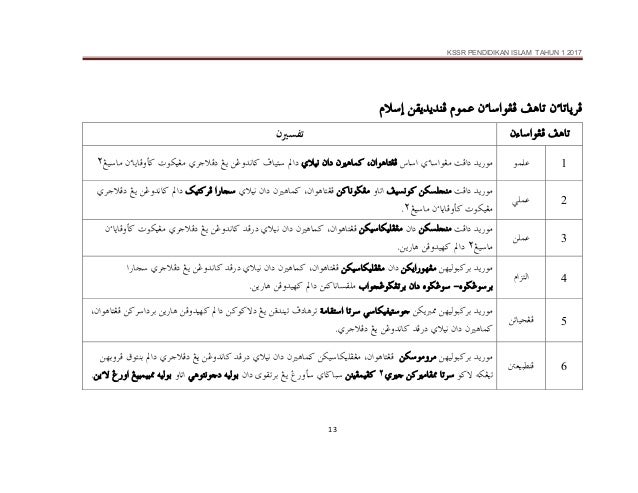 KSSR PENDIDIKAN ISLAM TAHUN 1 2017
ڤرياتاءن تاهڤ ڤڠواساءن عموم ڤنديديقن إسلام
تاهڤ ڤڠواساءن تفسيرن
1 علمو موريد داڤت مڠواساءي اساس ڤڠتاهوان، كماهيرن دان نيلاي دالم ستياڤ كاندوڠن يڠ دڤلاجري مڠيكوت كأوڤاياءن ماسيڠ٢
2 عملي موريد داڤت منجلسكن كونسيڤ اتاو مڠڬوناكن ڤڠتاهوان، كماهيرن دان نيلاي سچارا ڤركتيك دالم كاندوڠن يڠ دڤلاجري
مڠيكوت كأوڤاياءن ماسيڠ٢.
3 عملن موريد داڤت منجلسكن دان مڠڤليكاسيكن ڤڠتاهوان، كماهيرن دان نيلاي درڤد كاندوڠن يڠ دڤلاجري مڠيكوت كأوڤاياءن
ماسيڠ٢ دالم كهيدوڤن هارين.
4 التزام موريد بركبوليهن مڠهورايكن دان مڠڤليكاسيكن ڤڠتاهوان، كماهيرن دان نيلاي درڤد كاندوڠن يڠ دڤلاجري سچارا
برسوڠڬوه– سوڠڬوه دان برتڠڬوڠجواب ملقساناكنن دالم كهيدوڤن هارين.
5 ڤڠحياتن موريد بركبوليهن ممبريكن جوستيفيكاسي سرتا استقامة ترهادڤ تيندقن يڠ دلاكوكن دالم كهيدوڤن هارين برداسركن ڤڠتاهوان،
كماهيرن دان نيلاي درڤد كاندوڠن يڠ دڤلاجري.
6 ڤنطبيعتن موريد بركبوليهن مروموسكن ڤڠتاهوان، مڠڤليكاسيكن كماهيرن دان نيلاي درڤد كاندوڠن يڠ دڤلاجري دالم بنتوق ڤروبهن
تيڠكه لاكو سرتا ممڤاميركن چيري٢ كڤيمڤينن سباڬاي سأورڠ يڠ برتقوى دان بوليه دچونتوهي اتاو بوليه ممبيمبيڠ اورڠ لاءين.
13